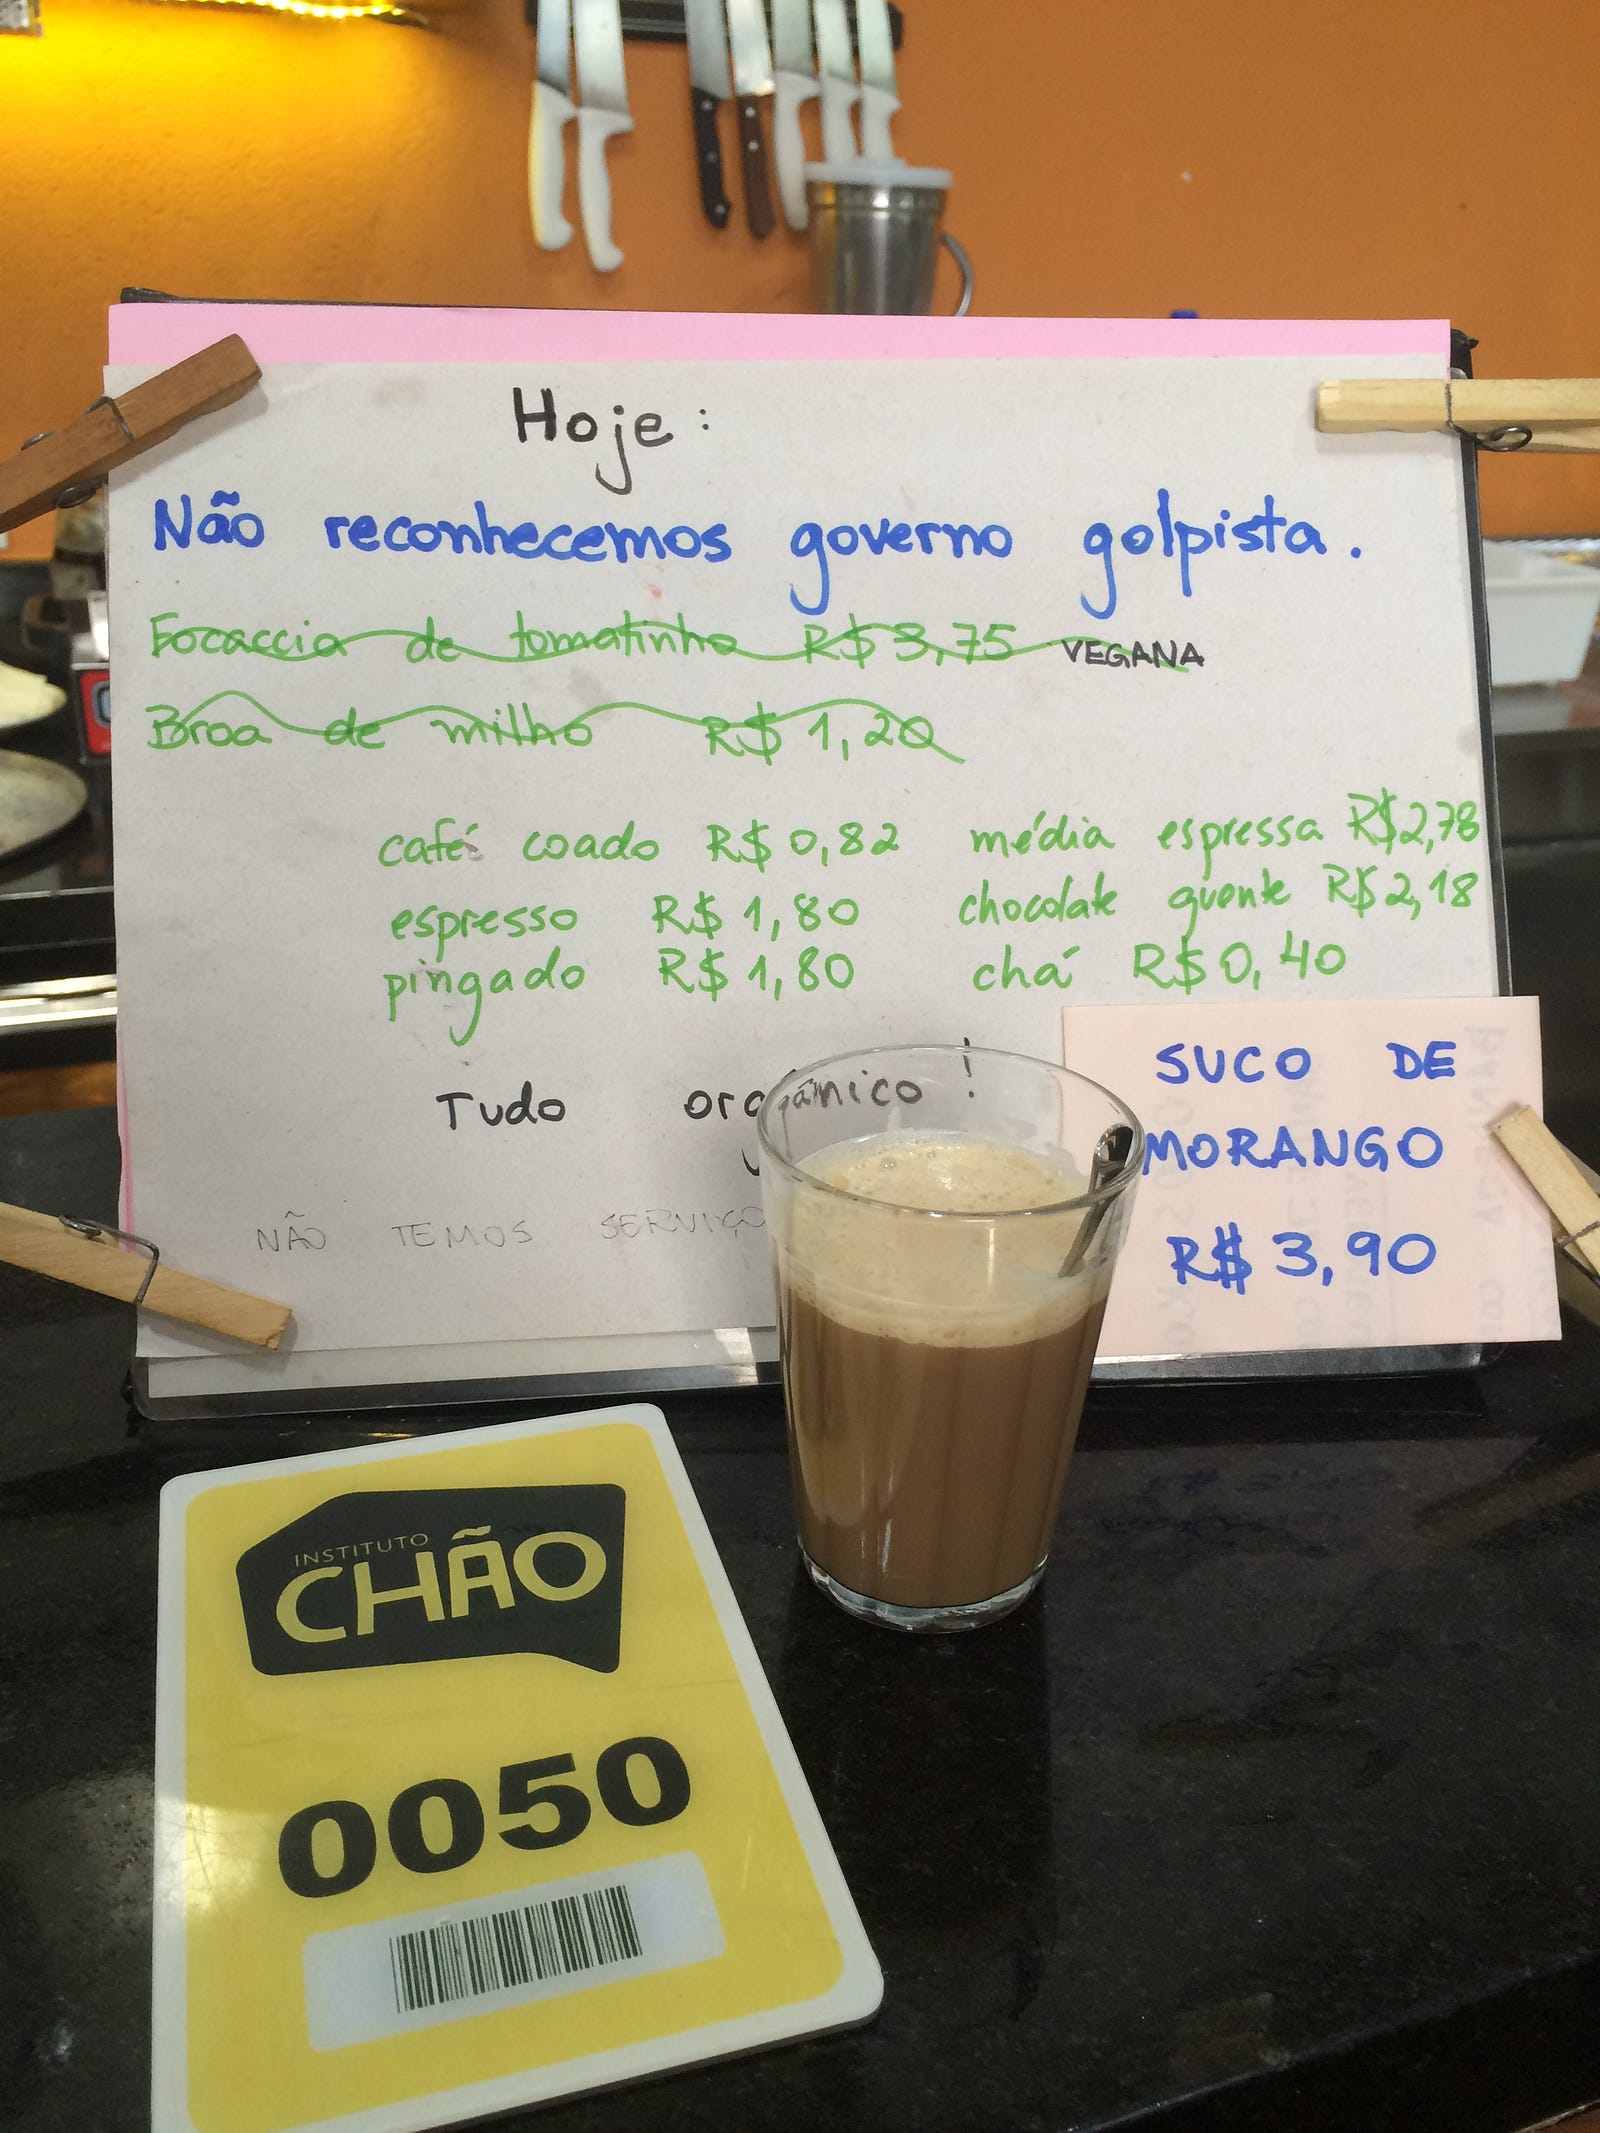 Hoje:
Não reconhecemos governo golpista.
Focaccia de tomatinho R$ 3,75 VEGANA
Broa de milho R$ 1,20
café coado R$ 0,82 média espressa R$2,78
espresso R$ 1,80 chocolate quente R$2,18
pingado R$ 1,80 chá R$0,40
Tudo orgânico!
NÃO TEMOS SERVIÇO
SUCO DE
MORANGO
R$ 3,90
INSTITUTO
CHÃO
0050